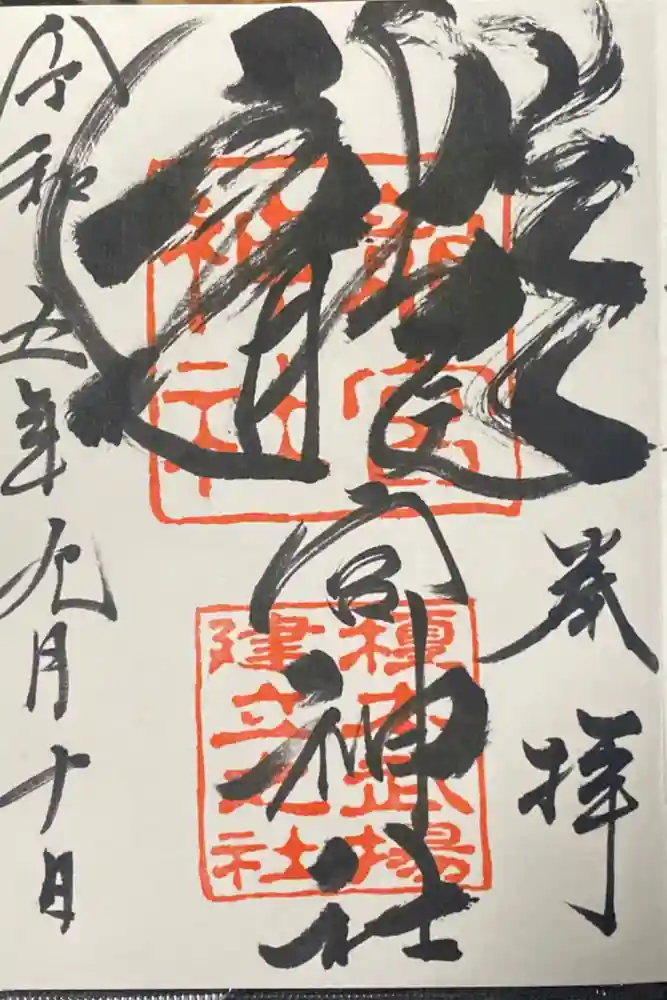 奉拝
龍宮神社
龍宮
神社
榎本武揚
建立之社
令和五年九月十日